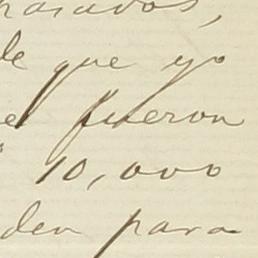 pasados,
de que yo
el fueron
10,000
den para